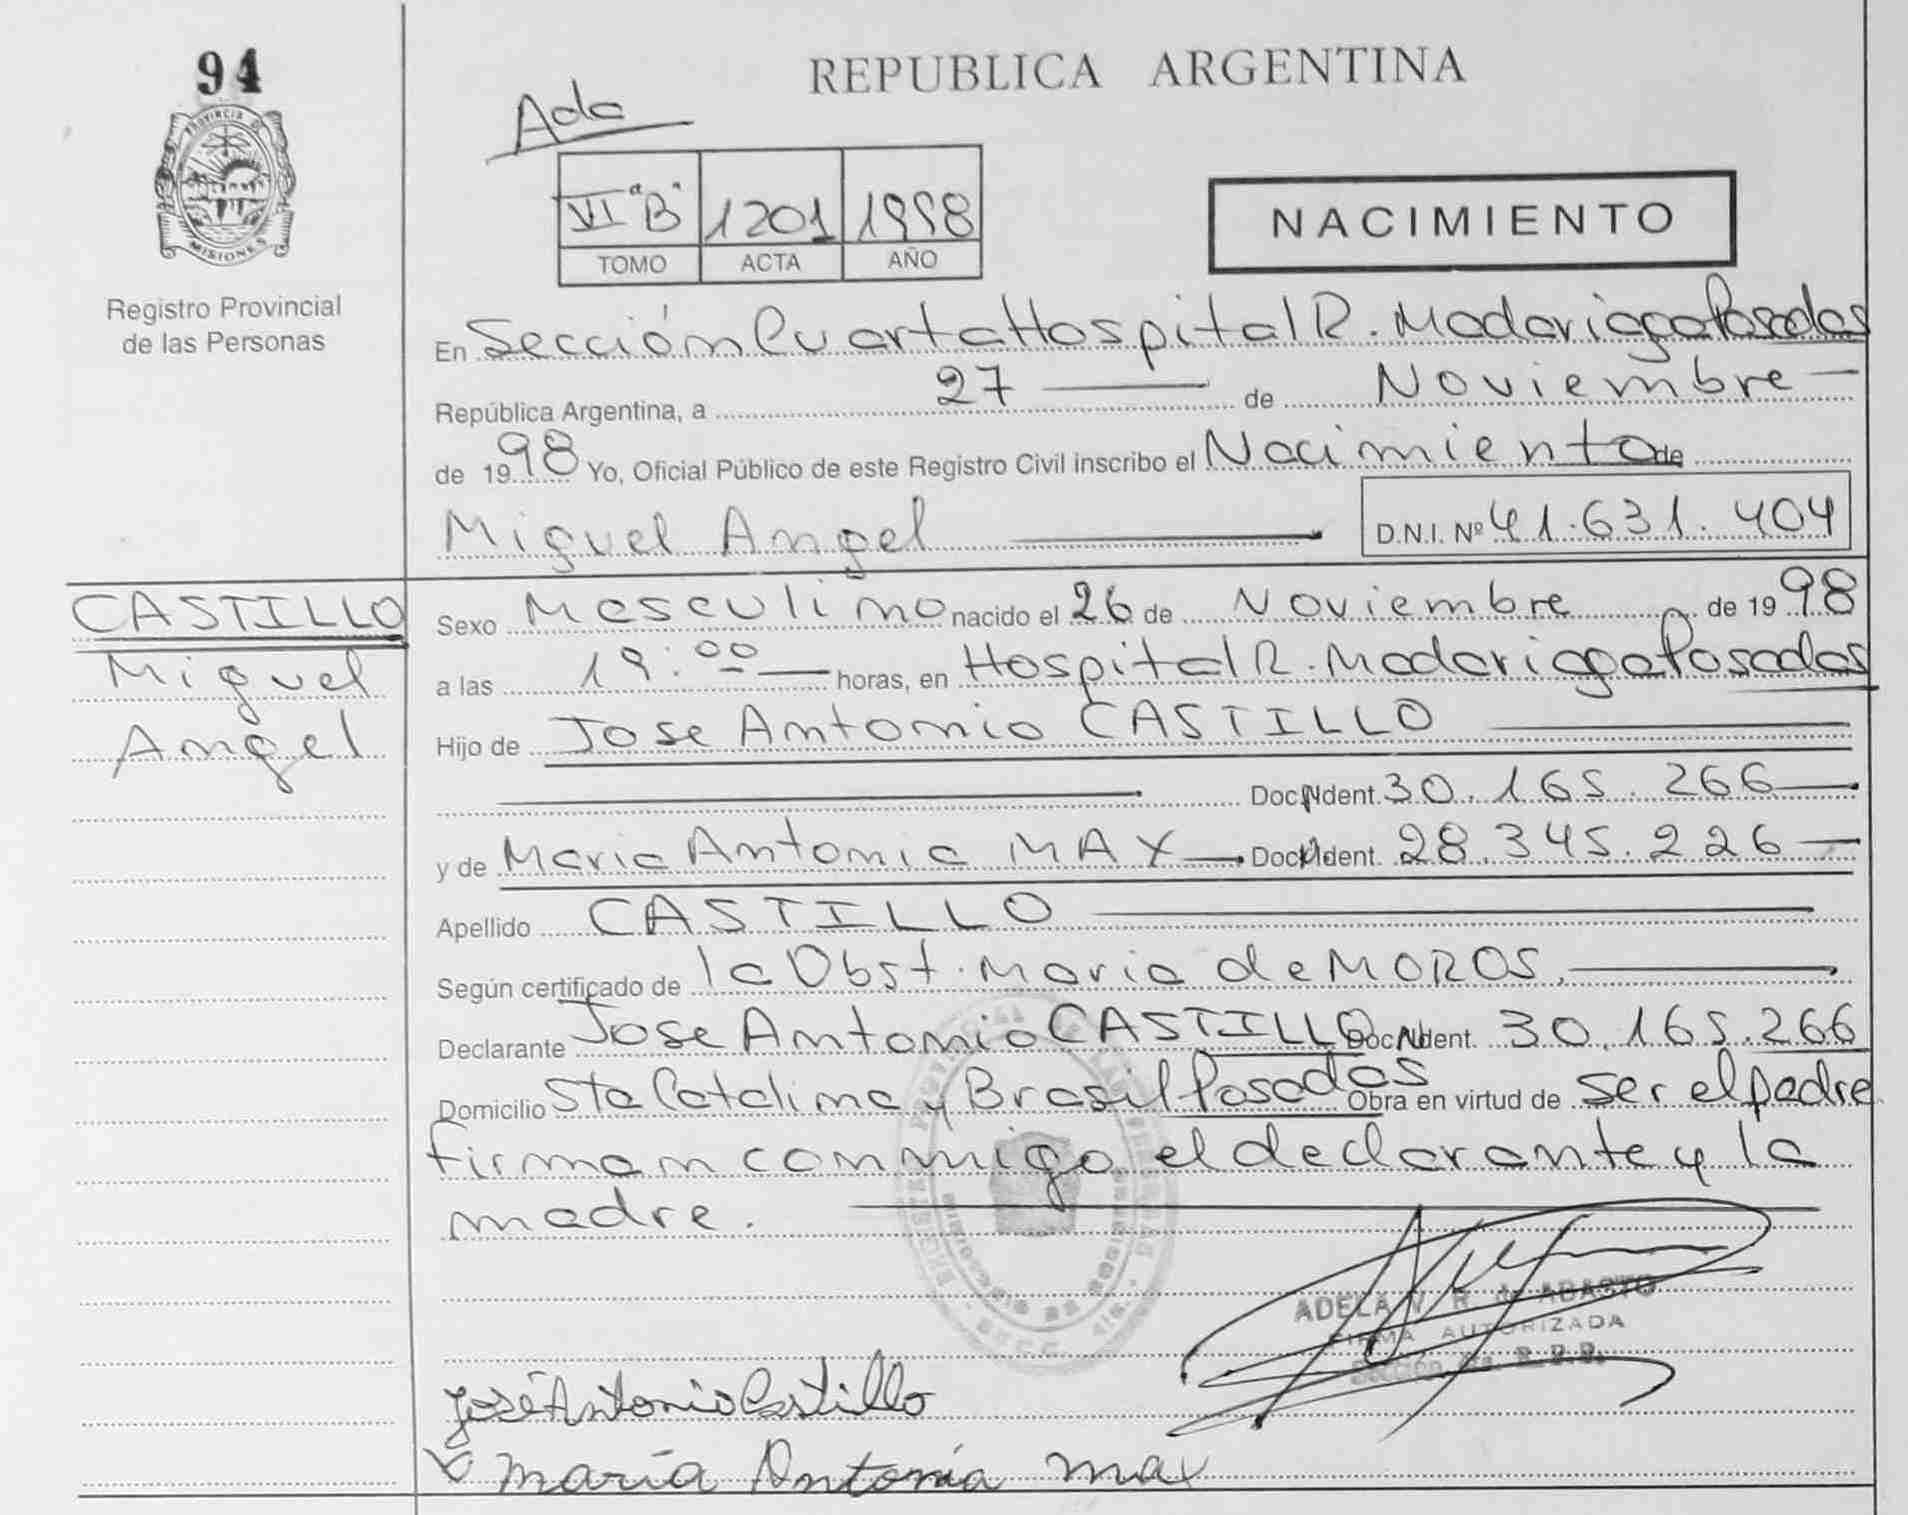 94
PROVINCIA D
MISIONES
Registro Provincial
de las Personas
REPUBLICA ARGENTINA
Ada
VI "B" 1201 1998
TOMO ACTA AÑO
NACIMIENTO
En Sección Cuarta Hospital R. Madariaga Posadas
República Argentina, a 27 de Noviembre
de 1998 Yo, Oficial Público de este Registro Civil inscribo el Nacimiento de
Miguel Angel D.N.I. Nº 41.631.404
CASTILLO
Miguel
Angel
Sexo Masculino nacido el 26 de Noviembre de 1998
a las 19:00 horas, en Hospital R. Madariaga Posadas
Hijo de Jose Antonio CASTILLO
Doc. Ident. 30.165.266
y de Maria Antonia MAX Doc. Ident. 28.345.226
Apellido CASTILLO
Según certificado de la Obst. Maria de MOROS.
Declarante Jose Antonio CASTILLO Doc. Ident. 30.165.266
Domicilio Sta Catalina y Brasil Posadas Obra en virtud de ser el padre
firman conmigo el declarante y la
madre.
ADELA V. R. de ABASTO
FIRMA AUTORIZADA
José Antonio Castillo
María Antonia Max